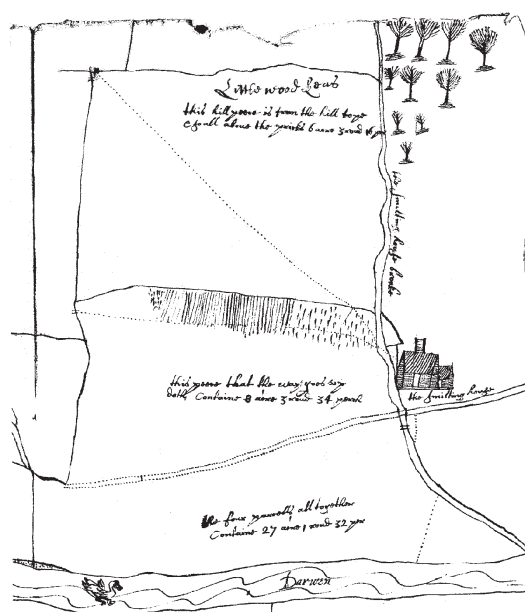 Little wood Leas
this hill peece is from the hill tope
all above the pricks 6 acre 3 rood
the smilting house
this peece that the way goes
doth Containe 8 acre 3 rood 34 perch
the smilting house
the four parcells all together
Containe 27 acre 1 rood 32 per
Darwen